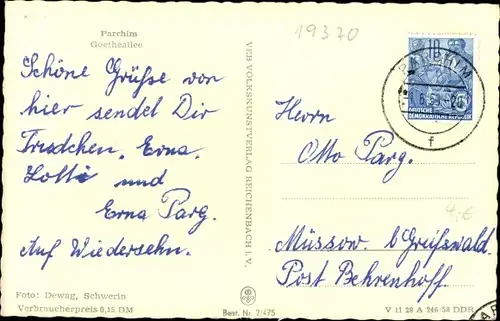 Parchim
Goetheallee
Schöne Grüße von
hier sendet Dir
Trudchen, Erna,
Lotti und
Erna Parg.
Auf Wiedersehn.
Foto: Dewag, Schwerin
Verbraucherpreis 0,15 DM
VEB VOLKSKUNSTVERLAG REICHENBACH i. V.
Best. Nr. 2/475
19370
10
DEUTSCHE
DEMOKRATISCHE REPUBLIK
PARCHIM
f
Herrn
Otto Parg.
4,€
Müssow. b/Greifswald.
Post Behrenhoff.
V 11 28 A 246/58 DDR